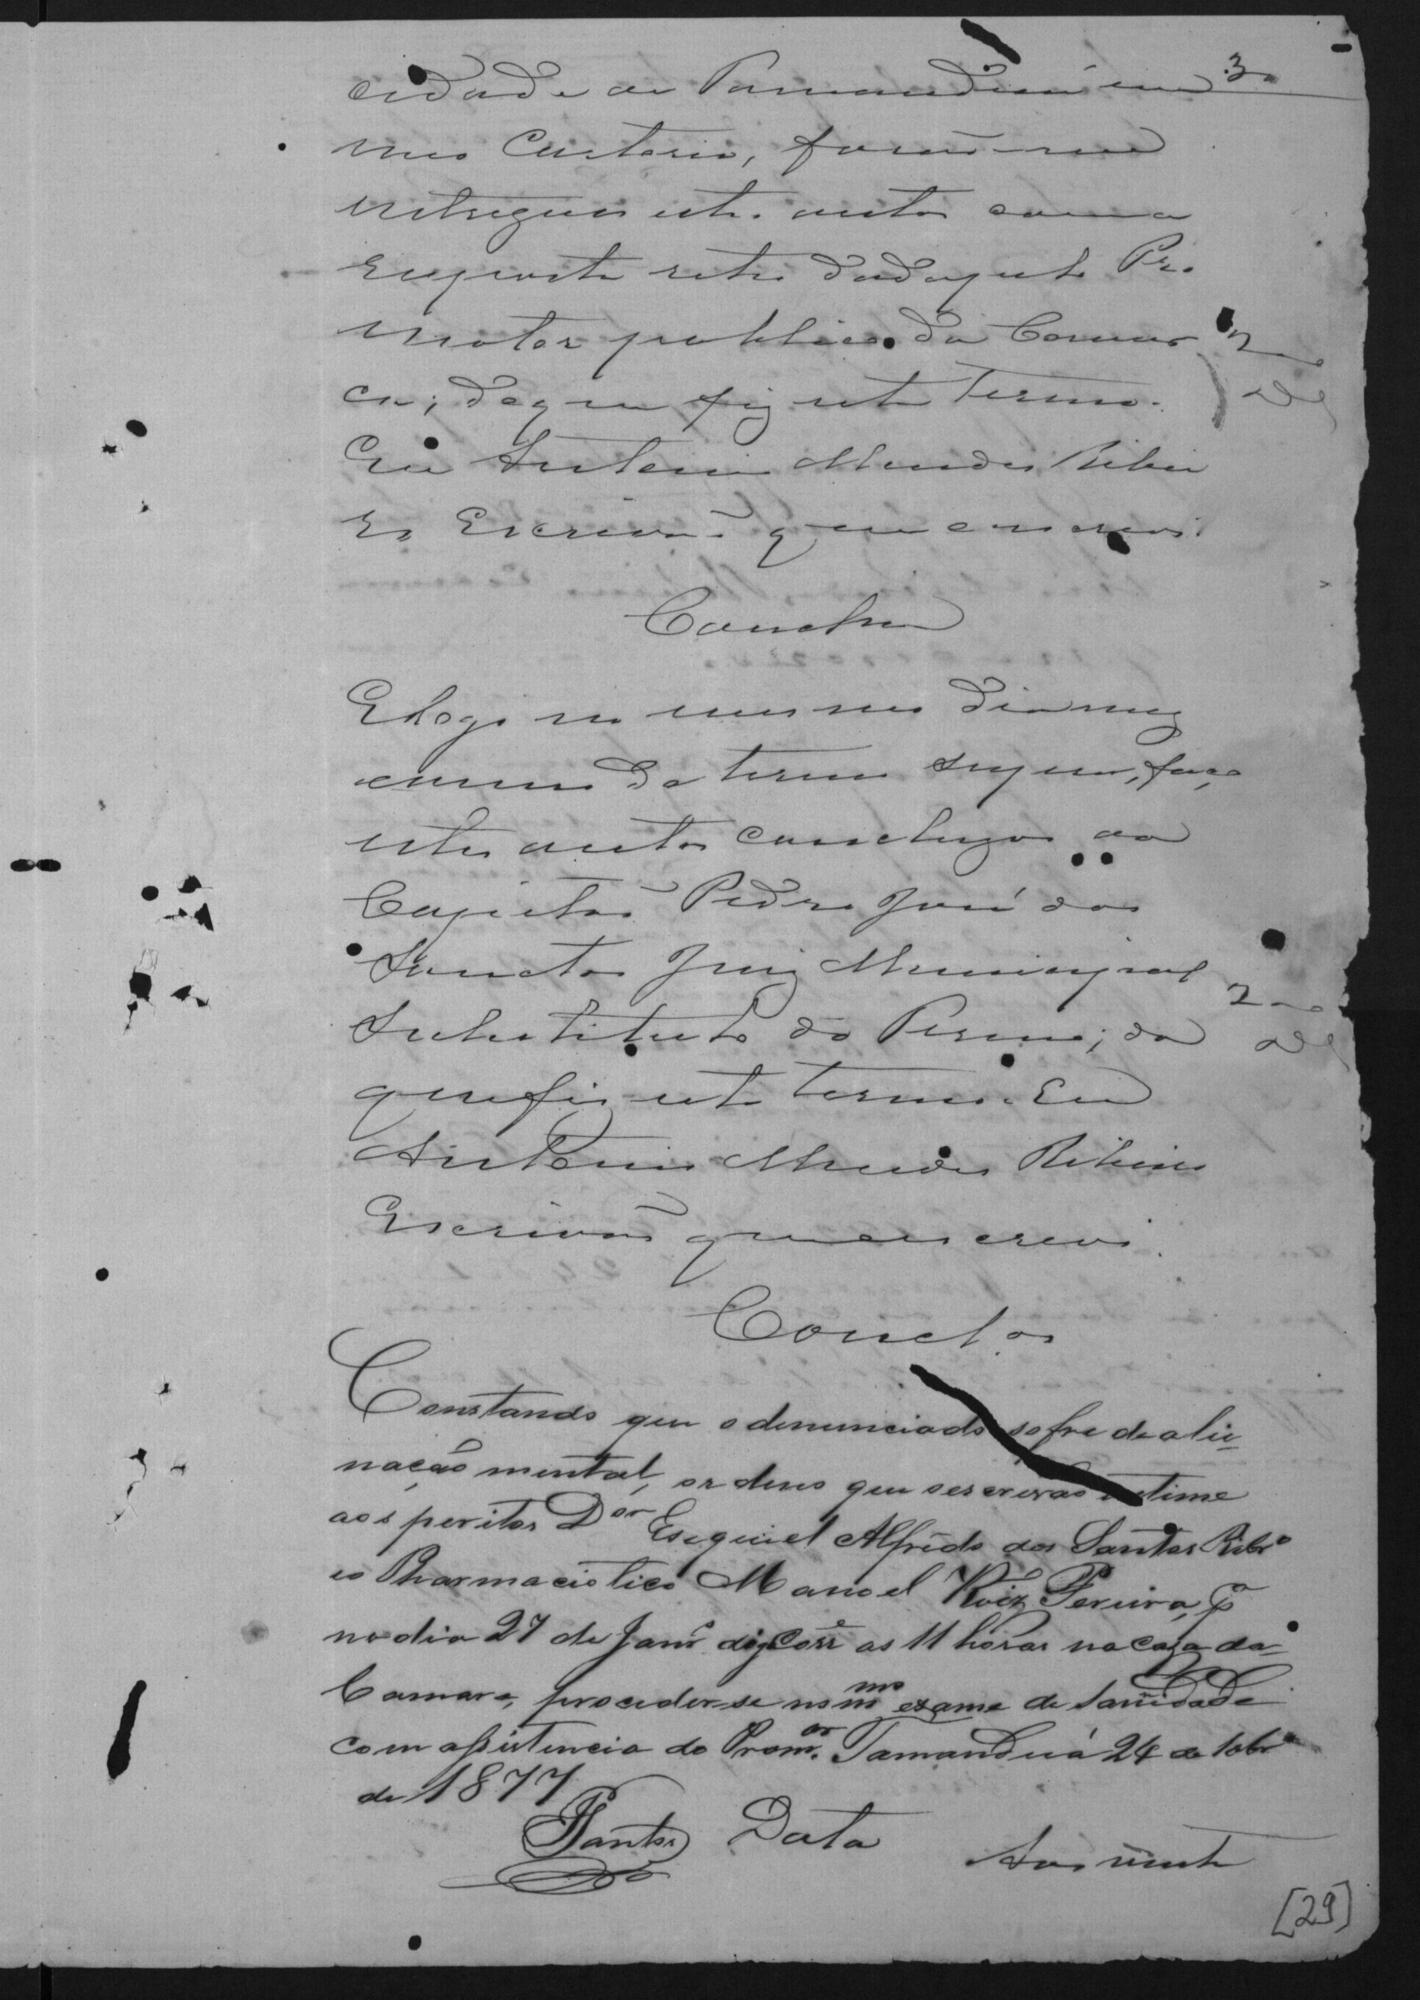 cidade de Tamanduá em 3
meo Cartorio, forão-me
entregues estes autos com a
resposta retro dada pelo Pro
motor publico da Comar
ca; do que fiz este termo.
Eu Antonio Mendes Ribei
ro Escrivão que o escrevi.
Conclusão
E logo no mesmo dia mez
anno do termo supra, faço
estes autos conclusos ao
Capitão Pedro José dos
Santos Juiz Municipal
Substituto do Termo; do
que fis este termo. Eu
Antonio Mendes Ribeiro
Escrivão que o escrevi.
Conclos
Constando que o denunciado sofre de alie
nação mental, ordeno que o escrivão intime
aos peritos Dor Esequiel Alfrêdo dos Santos Ribro
eo Pharmaciotico Manoel Roiz Pereira, pa
no dia 27 de Janro as 11 horas na caza da
Camara, proceder-se no mmo exame de sanidade
com assistencia do Promor. Tamanduá 24 de
de 1877
PSantos Data
Aos vinte
[29]